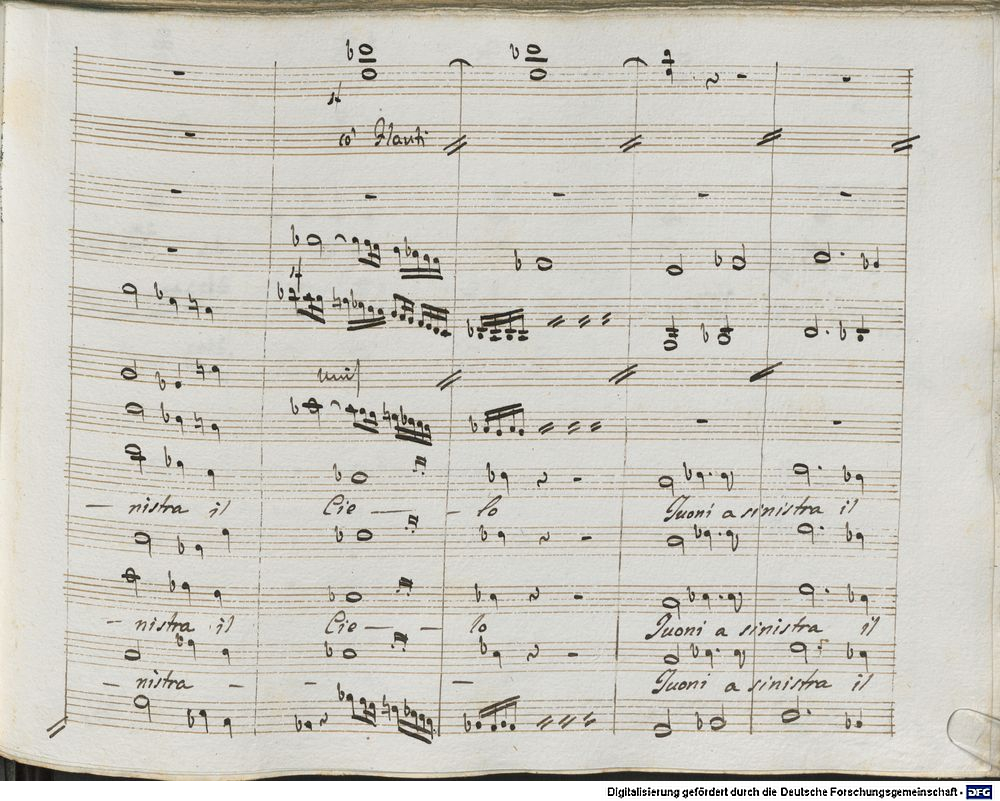 co' Flauti
unis
– nistra il Cie – – lo Tuoni a sinistra il
– nistra il Cie – – lo Tuoni a sinistra il
– nistra – – – Tuoni a sinistra il
Digitalisierung gefördert durch die Deutsche Forschungsgemeinschaft - DFG